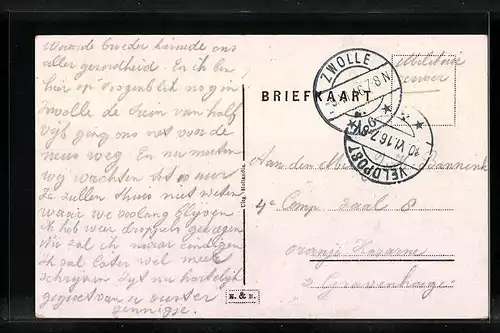 Waarde broeder hiermede ons
aller gezondheid. En ik ben
hier op 't oogenblik nog in
Zwolle de trein van half
ging ons net voor de
neus weg. En nu moeten
wij wachten tot 10 uur
Ze zullen thuis niet weten
waar we zoolang blijven
Ik heb weer druppels gekregen
Nu zal ik maar eindigen
Ik zal later wel meer
schrijven Zijt nu hartelijk
gegroet van u zuster
Uitg. Hollandia.
K. & B.
BRIEFKAART
ZWOLLE
VELDPOST
10 VI.16
Militair
Aan den
4e Comp zaal 8
oranje Kazerne
's Gravenhage